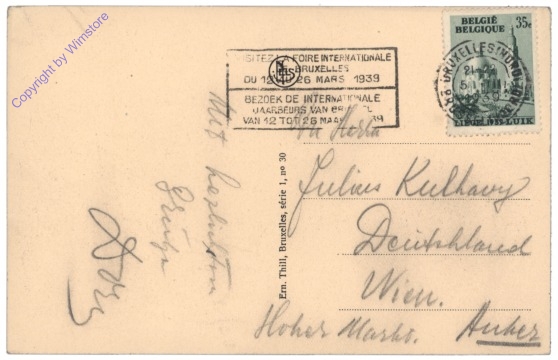 Copyright by Wimstore
VISITEZ LA FOIRE INTERNATIONALE
BRUXELLES
DU 12 AU 26 MARS 1939
BEZOEK DE INTERNATIONALE
JAARBEURS VAN BRUSSEL
VAN 12 TOT 26 MAART 1939
BELGIË 35c
BELGIQUE
LIEGE 1939 LUIK
BRUXELLES (NORD)
Mit herzlichen
Grüßen
Ern. Thill, Bruxelles, série 1, no 30
Herrn
Julius Kulhavy
Deutschland
Wien.
Hoher Markt. Anker